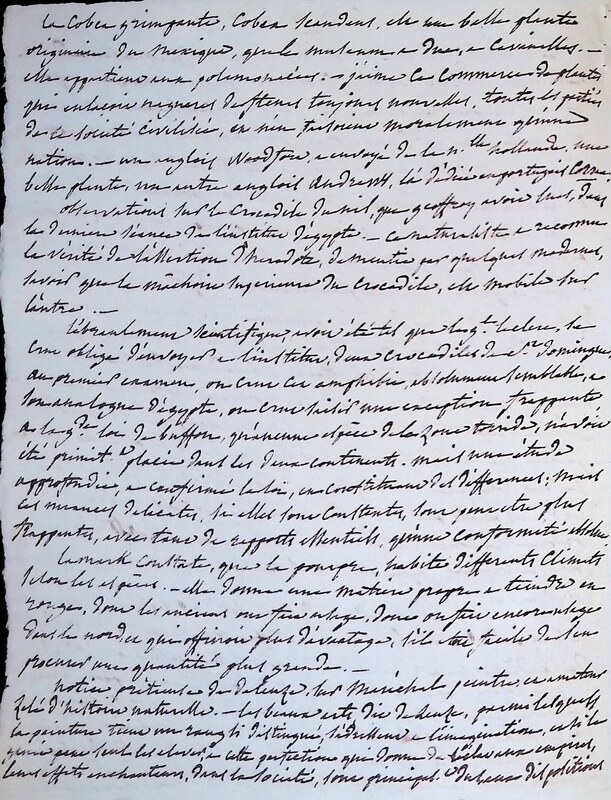 la Cobea grimpante, Cobea Scandens, est une belle plante
originaire du mexique, que le museum a due, a Cavanilles. —
elle appartient aux polemoniacées. — j'aime ce Commerce de plantes
que enlacoit nagueres de fleurs toujours nouvelles, toutes les parties
de la société civilisée, et n'en faisoient moralement qu'une
nation. — un anglois Woodfort, a envoyé de la n.lle hollande, une
belle plante, un autre anglois Andrews, l'a dédiée au portugais Correa
observations sur le Crocodile du nil, que geoffroy avoit lues, dans
la derniere séance de l'institut d'égypte. — ce naturaliste a reconnu
la verité de l'assertion d'herodote, démentie par quelques modernes,
savoir que la mâchoire superieure du Crocodile, est mobile sur
l'autre. —
l'ébranlement scientifique, avoit été tel que le g.l Leclerc, se
crut obligé d'envoyer a l'institut, deux crocodiles de S.t Domingue
au premier examen, on crut cet amphibie, absolument semblable, a
son analogue d'égypte, on crut saisir une exception frappante
a la g.de loi de buffon, qu'aucune espèce de la zone torride, n'avoit
été primit.t placée dans les deux continents. mais une étude
approfondie, a confirmé la loi, en constatant des differences; mais
ces nuances délicates, si elles sont Constantes, sont peut etre plus
frappantes, avec tant de rapports essentiels, qu'une conformité absolue
Lamarck Constate, que le pourpre, habite différents Climats
selon les espèces. — elle donne une matière propre a teindre en
rouge, dont les anciens ont fait usage, dont on fait encore usage
dans le nord, et qui offriroit plus d'avantage, s'il etoit facile de s'en
procurer une quantité plus grande. —
notice, précieuse de deleuze, sur Maréchal peintre, et amateur
zélé d'histoire naturelle. — les beaux arts, dit deleuze, parmi lesquels
la peinture tient un rang si distingué, s'adressent a l'imagination, et si le
genie peut seul les elever, a cette perfection qui donne de l'éclat aux empires,
leurs effets enchanteurs, dans la société, sont principal.t du aux dispositions